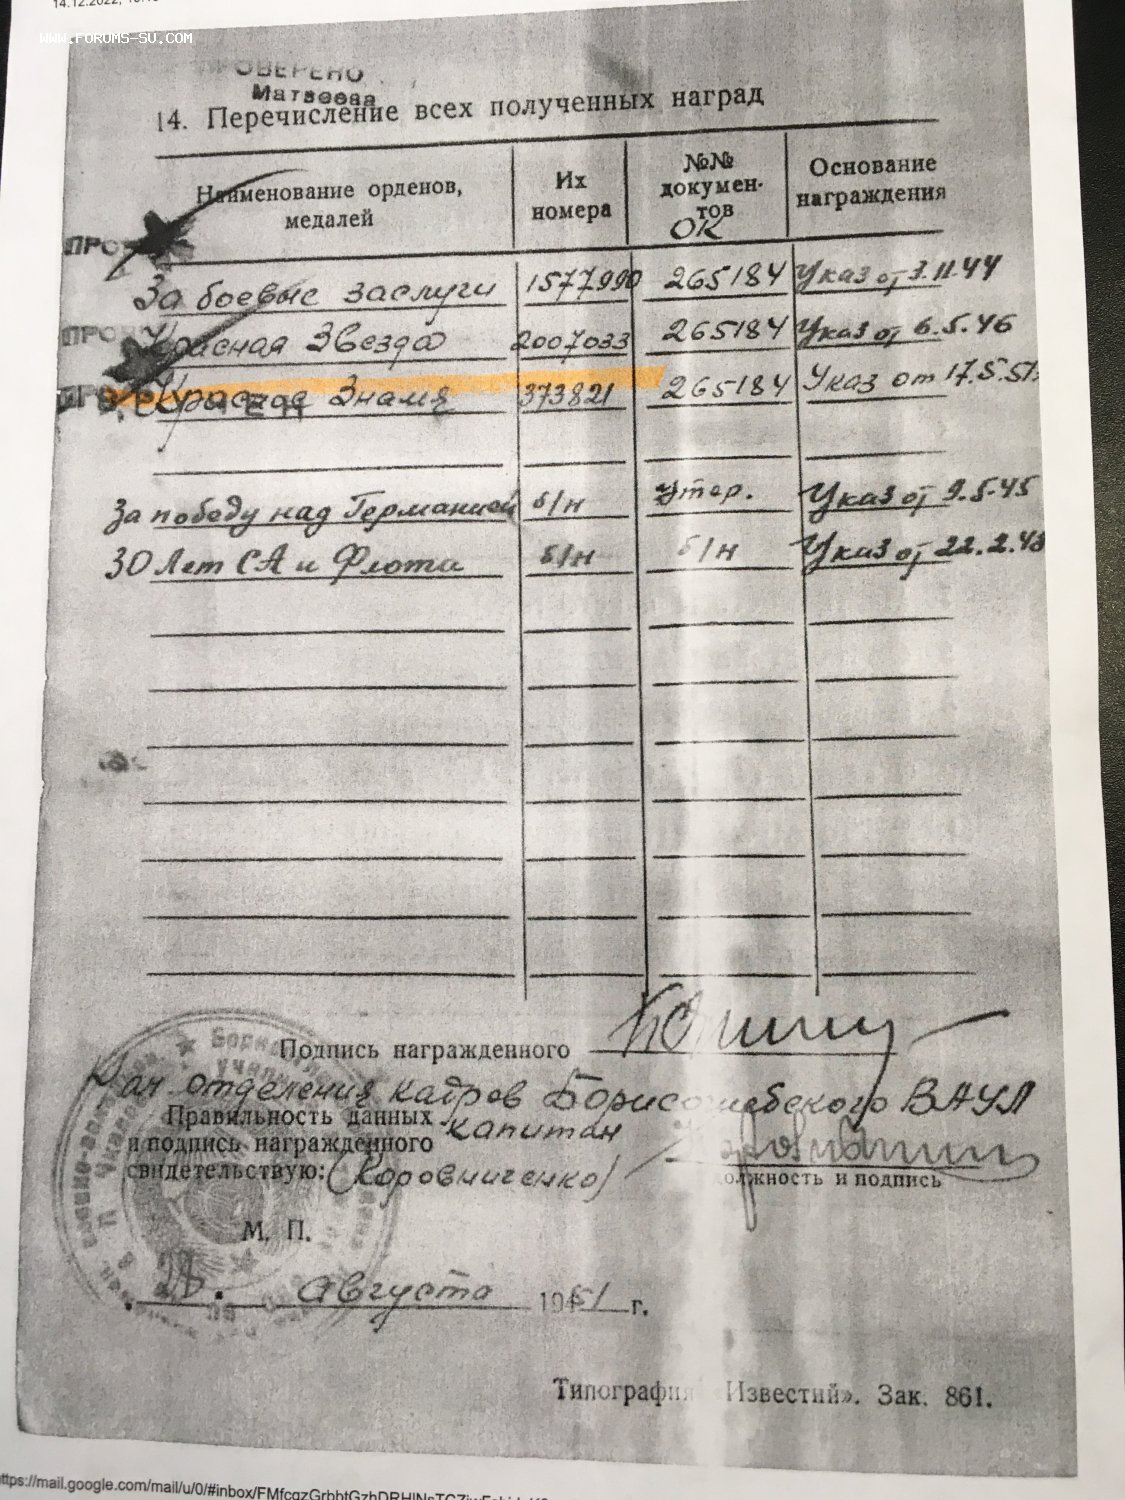 14.12.2022,
WWW.FORUMS-SU.COM
ПРОВЕРЕНО
Матвеева
14. Перечисление всех полученных наград
Наименование орденов, медалей
Их номера
№№ документов
ОК
Основание награждения
За боевые заслуги 1577990 265184 Указ от 3.11.44
Красная Звезда 2007033 265184 Указ от 6.5.46
Красное Знамя 373821 265184 Указ от 17.5.51
За победу над Германией б/н утер. Указ от 9.5.45
30 Лет СА и Флота б/н б/н Указ от 22.2.48
Подпись награжденного
Нач отделения кадров Борисоглебского ВАУЛ
Правильность данных
и подпись награжденного капитан
свидетельствую: (Коровниченко)
должность и подпись
М. П.
августа 1951 г.
Типография Известий». Зак. 861.